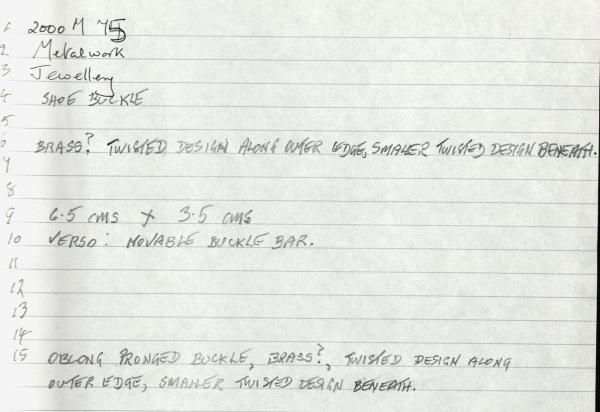 1 2000 M 75
2 Metalwork
3 Jewellery
4 SHOE BUCKLE
5
6 BRASS? TWISTED DESIGN ALONG OUTER EDGE, SMALLER TWISTED DESIGN BENEATH.
7
8
9 6.5 cms x 3.5 cms
10 VERSO: MOVABLE BUCKLE BAR.
11
12
13
14
15 OBLONG PRONGED BUCKLE, BRASS?, TWISTED DESIGN ALONG
OUTER EDGE, SMALLER TWISTED DESIGN BENEATH.